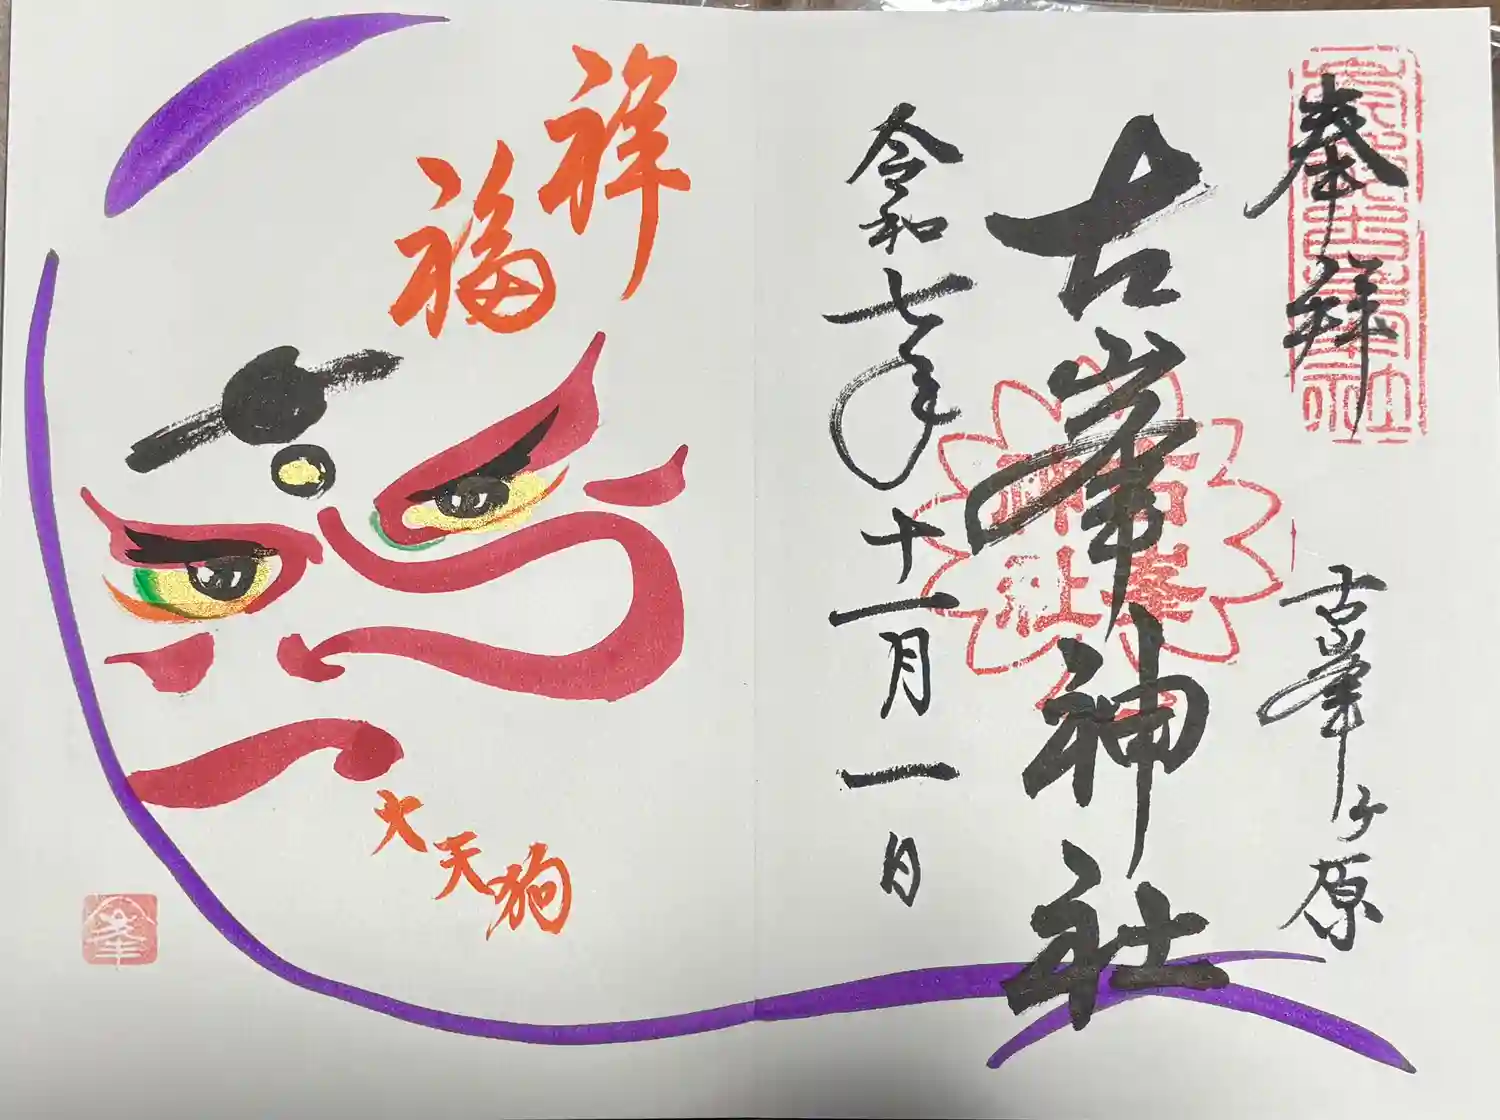 奉拝
古峯ヶ原
古峯神社
古峯
神社
令和七年十一月一日
祥
福
火天狗
峯